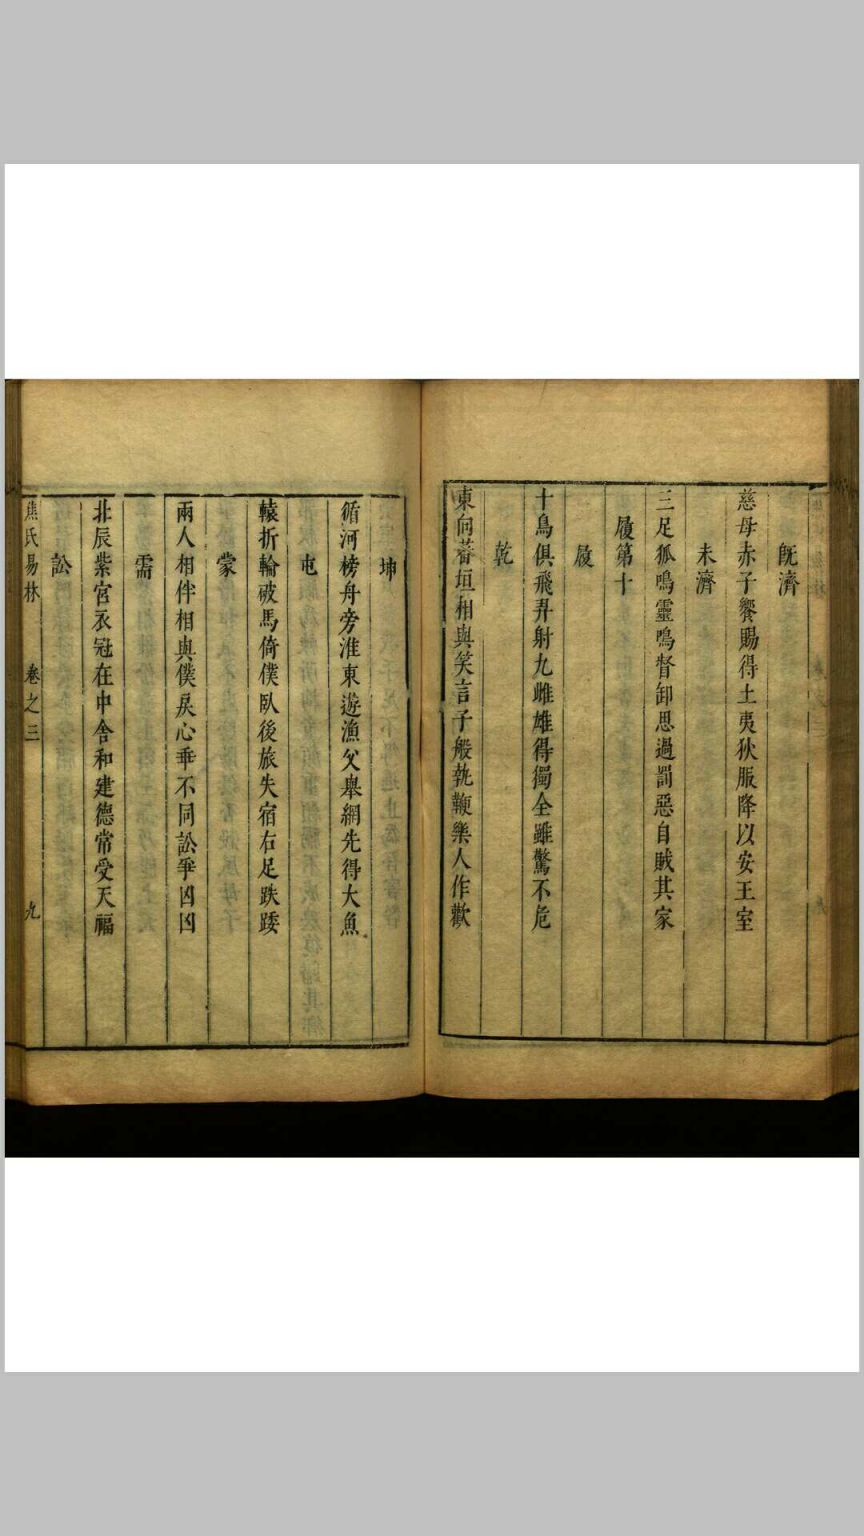 既濟
慈母赤子饗賜得土夷狄服降以安王室
未濟
三足狐鳴靈鳴督卸思過罰惡自賊其家
履第十
履
十烏俱飛羿射九雌雄得獨全雖驚不危
乾
東向蕃垣相與笑言子般執鞭樂人作歡
坤
循河榜舟旁淮東遊漁父舉網先得大魚
屯
轅折輪破馬倚僕臥後旅失宿右足跌踒
蒙
兩人相伴相與僕戾心乖不同訟爭凶凶
需
北辰紫宮衣冠在中含和建德常受天福
訟
焦氏易林 卷之三 九